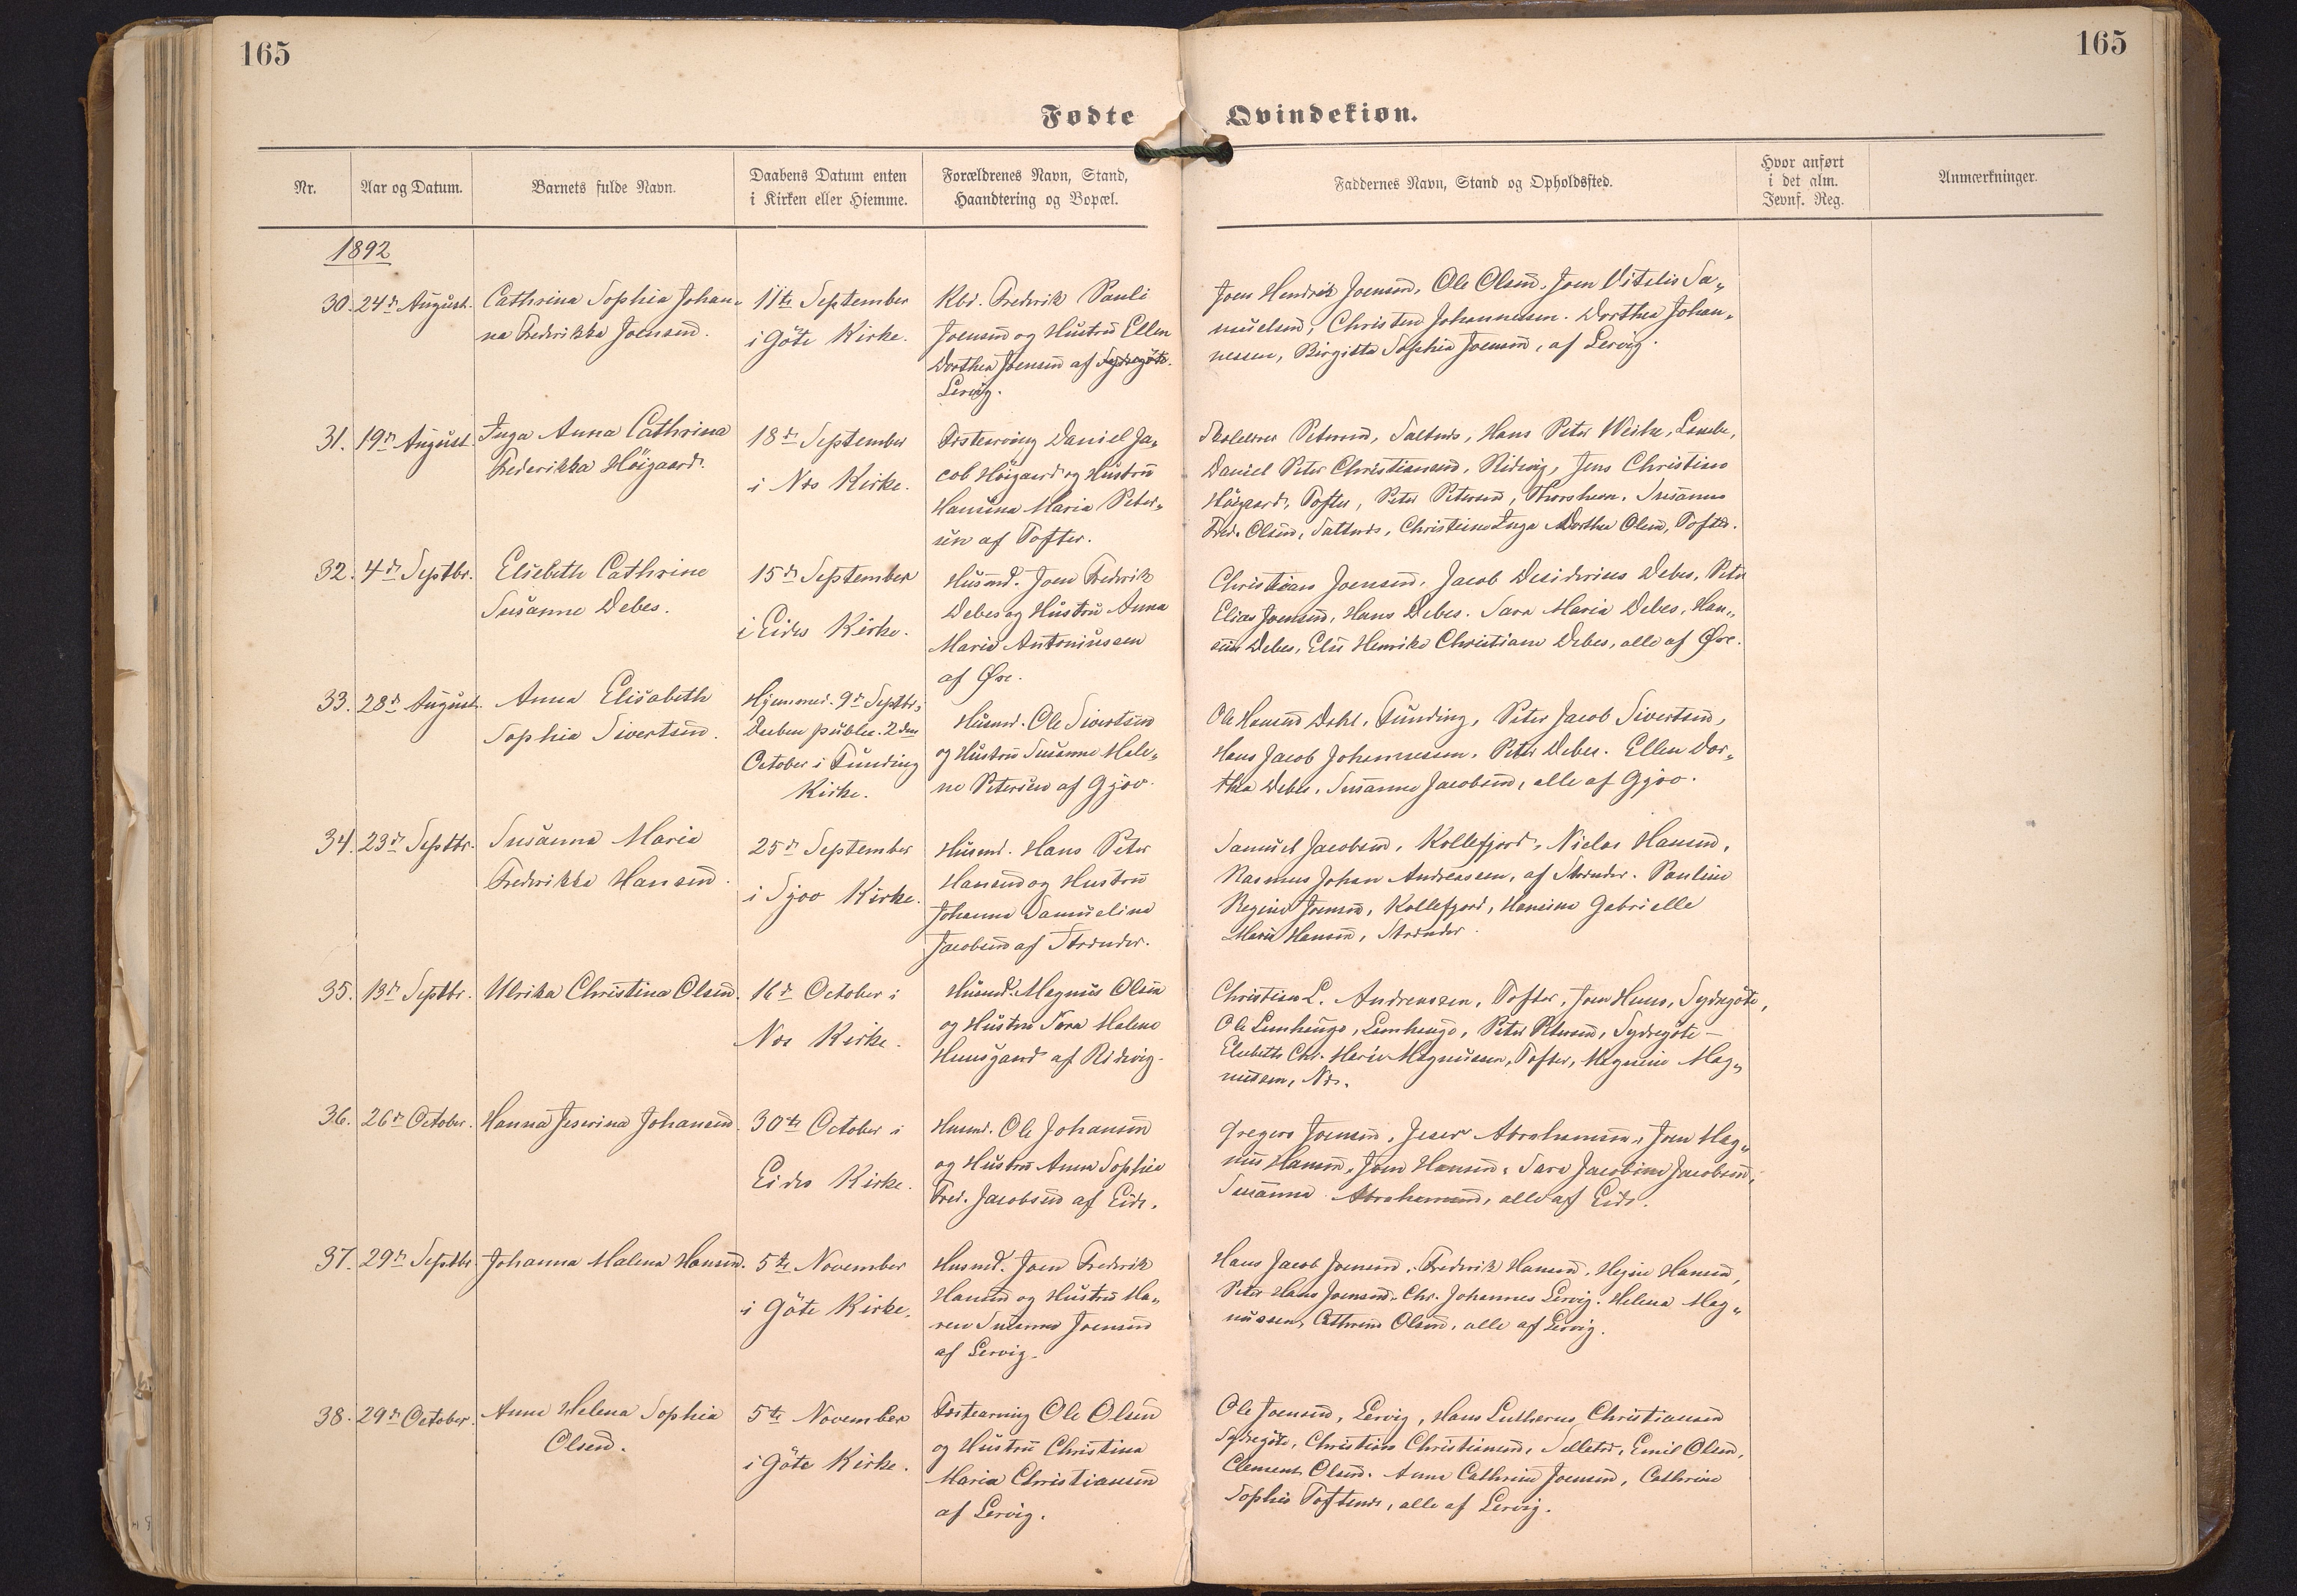 165
165
Fødte
Qvindekiøn.
Nr.
Aar og Datum.
Barnets fulde Navn.
Daabens Datum enten
i Kirken eller Hiemme.
Forældrenes Navn, Stand,
Haandtering og Bopæl.
Faddernes Navn, Stand og Opholdssted.
Hvor anført
i det alm.
Jevnf. Reg.
Anmærkninger.
1892
30. 24de August.
Cathrina Sophia Johan-
na Frederikka Joensen.
11te September
i Göte Kirke.
Kbd. Frederik Pauli
Joensen og Hustru Ellen
Dorthea Joensen af Sydregöte.
Lervig.
Joen Hendrik Joensen, Ole Olsen, Joen Vitelis Sa-
muelsen, Christen Johannessen. Dorthea Johan-
nessen, Birgitta Sophia Joensen, af Lervig.
31. 19de August
Inga Anna Cathrina
Frederikka Höigaard.
18de September
i Næs Kirke.
Daniel Ja-
cob Höigaard og Hustru
Hansina Maria Peter-
sen af Tofter.
Petersen, Saltnæs, Hans Peter Weihe, Lambe,
Daniel Peter Christiansen, Ridevig, Jens Christian
Höigaard, Tofter, Peter Petersen, Thorshavn, Susanna
Fred. Olsen, Saltnæs, Christine Inga Dorthea Olsen, Tofter.
32. 4de Septbr.
Elsebeth Cathrine
Susanne Debes.
15de September
i Eides Kirke.
Husmd. Joen Frederik
Debes og Hustru Anna
Maria Antoniussen
af Øre.
Christian Joensen, Jacob Desiderius Debes, Peter
Elias Joensen, Hans Debes. Sara Maria Debes, Han-
sine Debes, Else Henrike Christiane Debes, alle af Øre.
33. 28de August.
Anna Elisabeth
Sophia Sivertsen.
Hjemmed. 9de Septbr;
Daaben public. 2den
October i Funding
Kirke.
Husmd. Ole Sivertsen
og Hustru Susanne Male-
ne Petersen af Gjov.
Ole Hansen Dahl, Funding, Peter Jacob Sivertsen,
Hans Jacob Johannessen, Peter Debes. Ellen Dor-
thea Debes, Susanne Jacobsen, alle af Gjov.
34. 23de Septbr.
Susanna Maria
Frederikke Hansen.
25de September
i Sjov Kirke.
Husmd. Hans Peter
Hansen og Hustru
Johanna Samueline
Jacobsen af Strænder.
Samuel Jacobsen, Kollefjord, Niclas Hansen,
Rasmus Johan Andreassen, af Strænder. Pauline
Regine Joensen, Kollefjord, Hansine Gabrielle
Marie Hansen, Strænder.
35. 13de Septbr.
Ulrika Christina Olsen.
16de October i
Næs Kirke.
Husmd. Magnus Olsen
og Hustru Sara Malene
Hunsgaard af Ridevig.
Christian L. Andreassen, Tofter, Joen Huus, Sydregöte,
Ole Lamhauge, Lamhauge, Peter Petersen, Sydregöte –
Elsebeth Chr. Marie Magnussen, Tofter, Magnine Mag-
nussen, Næs.
36. 26de October.
Hanna Jeserina Johansen.
30te October i
Eides Kirke.
Husmd. Ole Johansen
og Hustru Anna Sophie
Fred. Jacobsen af Eide.
Gregers Joensen, Jeser Abrahamsen, Joen Mag-
nus Hansen, Joen Hansen, Sara Jacobine Jacobsen,
Susanna Abrahamsen, alle af Eide.
37. 29de Septbr.
Johanna Malena Hansen.
5te November
i Göte Kirke.
Husmd. Joen Frederik
Hansen og Hustru Ma-
ren Susanna Joensen
af Lervig.
Hans Jacob Joensen, Frederik Hansen, Hansen,
Peter Hans Joensen, Chr. Johannes Lervig. Helena Mag-
nussen, Cathrine Olsen, alle af Lervig.
38. 29de October.
Anne Helena Sophia
Olsen.
5te November
i Göte Kirke.
Ole Olsen
og Hustru Christina
Maria Christiansen
af Lervig.
Ole Joensen, Lervig, Hans Lutherus Christiansen
Sydregöte, Christian Christiansen, Emil Olsen,
Clement Olsen. Anna Cathrine Joensen, Cathrine
Sophie Toftenæs, alle af Lervig.